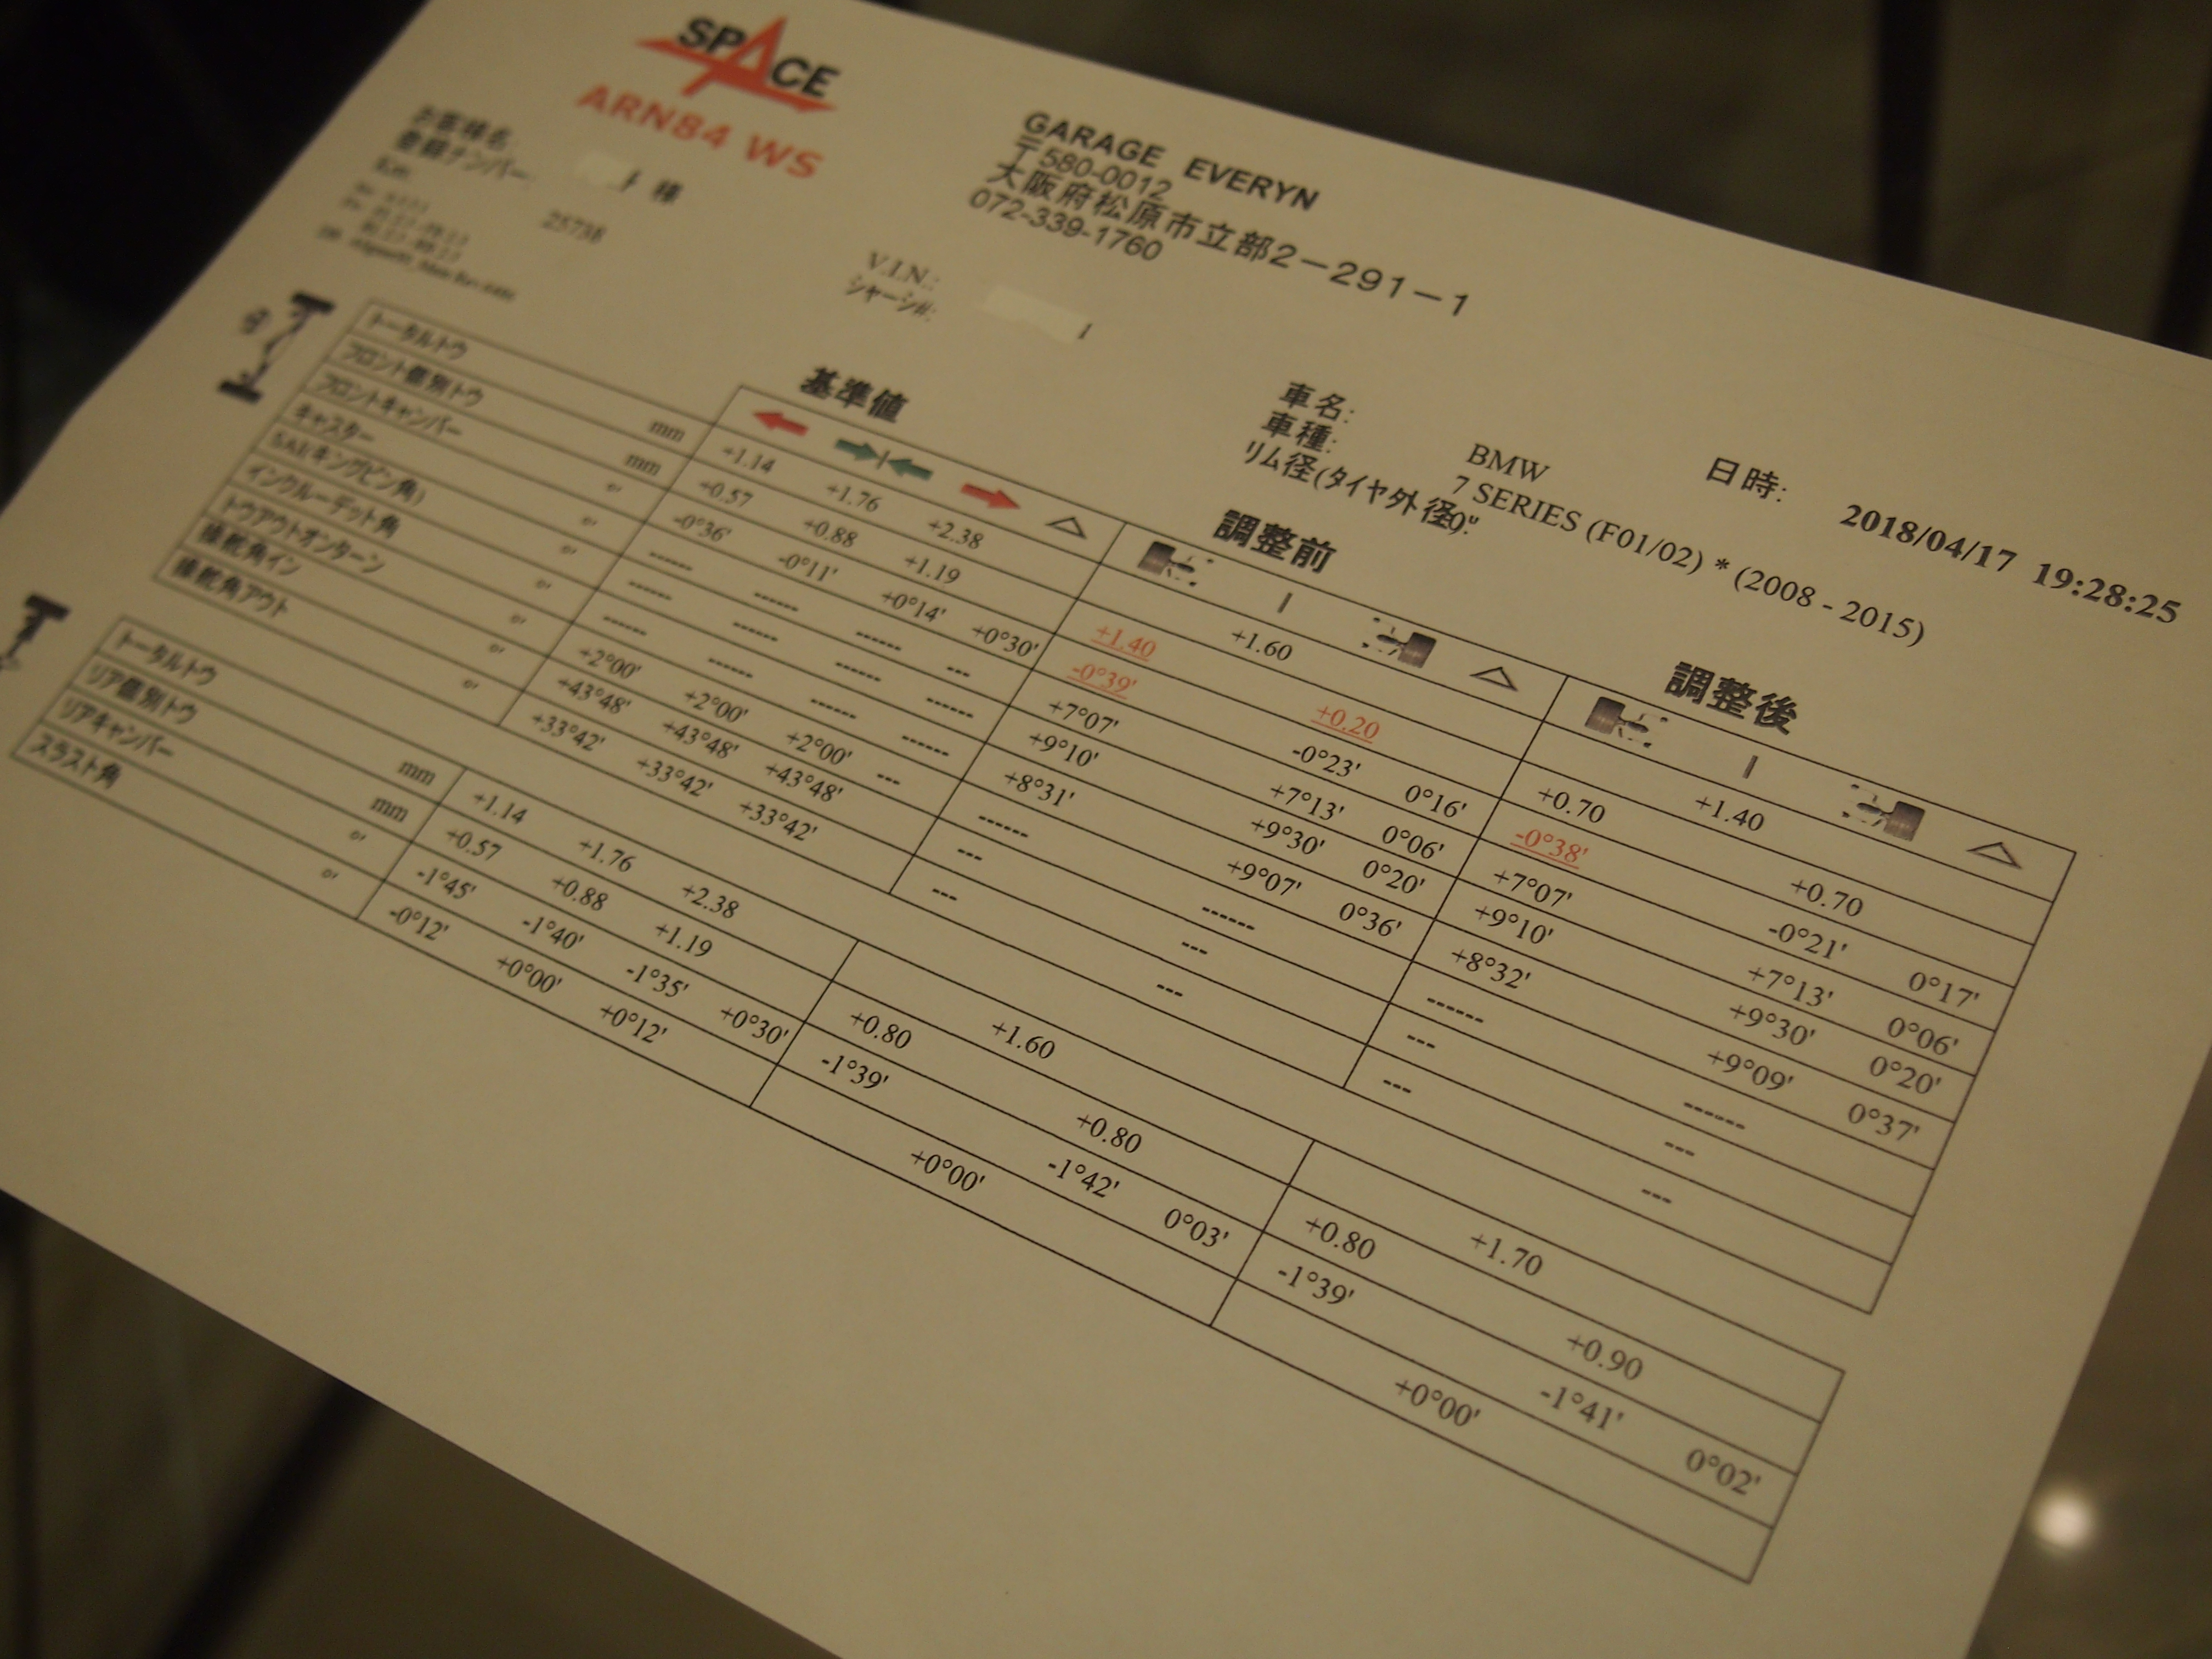 SPACE
ARN84 WS
GARAGE EVERYN
〒580-0012
大阪府松原市立部2－291－1
072-339-1760
お客様名:
様
登録ナンバー:
Km
25738
V.I.N.:
シャーシ#:
車名: BMW
車種: 7 SERIES (F01/02) * (2008 - 2015)
リム径(タイヤ外径): 0"
日時: 2018/04/17 19:28:25
基準値 調整前 調整後
トータルトウ mm +1.14 +1.76 +2.38 +1.60 +1.40
フロント個別トウ mm +0.57 +0.88 +1.19 +1.40 +0.20 +0.70 +0.70
フロントキャンバー °' -0°36' -0°11' +0°14' +0°30' -0°39' -0°23' 0°16' -0°38' -0°21' 0°17'
キャスター °' ------ ------ ------ --- +7°07' +7°13' 0°06' +7°07' +7°13' 0°06'
SAI(キングピン角) °' ------ ------ ------ ------ +9°10' +9°30' 0°20' +9°10' +9°30' 0°20'
インクルーデット角 °' ------ ------ ------ ------ +8°31' +9°07' 0°36' +8°32' +9°09' 0°37'
トウアウトオンターン °' +2°00' +2°00' +2°00' --- ------ ------ ------ ------
操舵角イン °' +43°48' +43°48' +43°48' --- --- --- ---
操舵角アウト °' +33°42' +33°42' +33°42' --- --- --- ---
トータルトウ mm +1.14 +1.76 +2.38 +1.60 +1.70
リア個別トウ mm +0.57 +0.88 +1.19 +0.80 +0.80 +0.80 +0.90
リアキャンバー °' -1°45' -1°40' -1°35' +0°30' -1°39' -1°42' 0°03' -1°39' -1°41' 0°02'
スラスト角 °' -0°12' +0°00' +0°12' +0°00' +0°00'